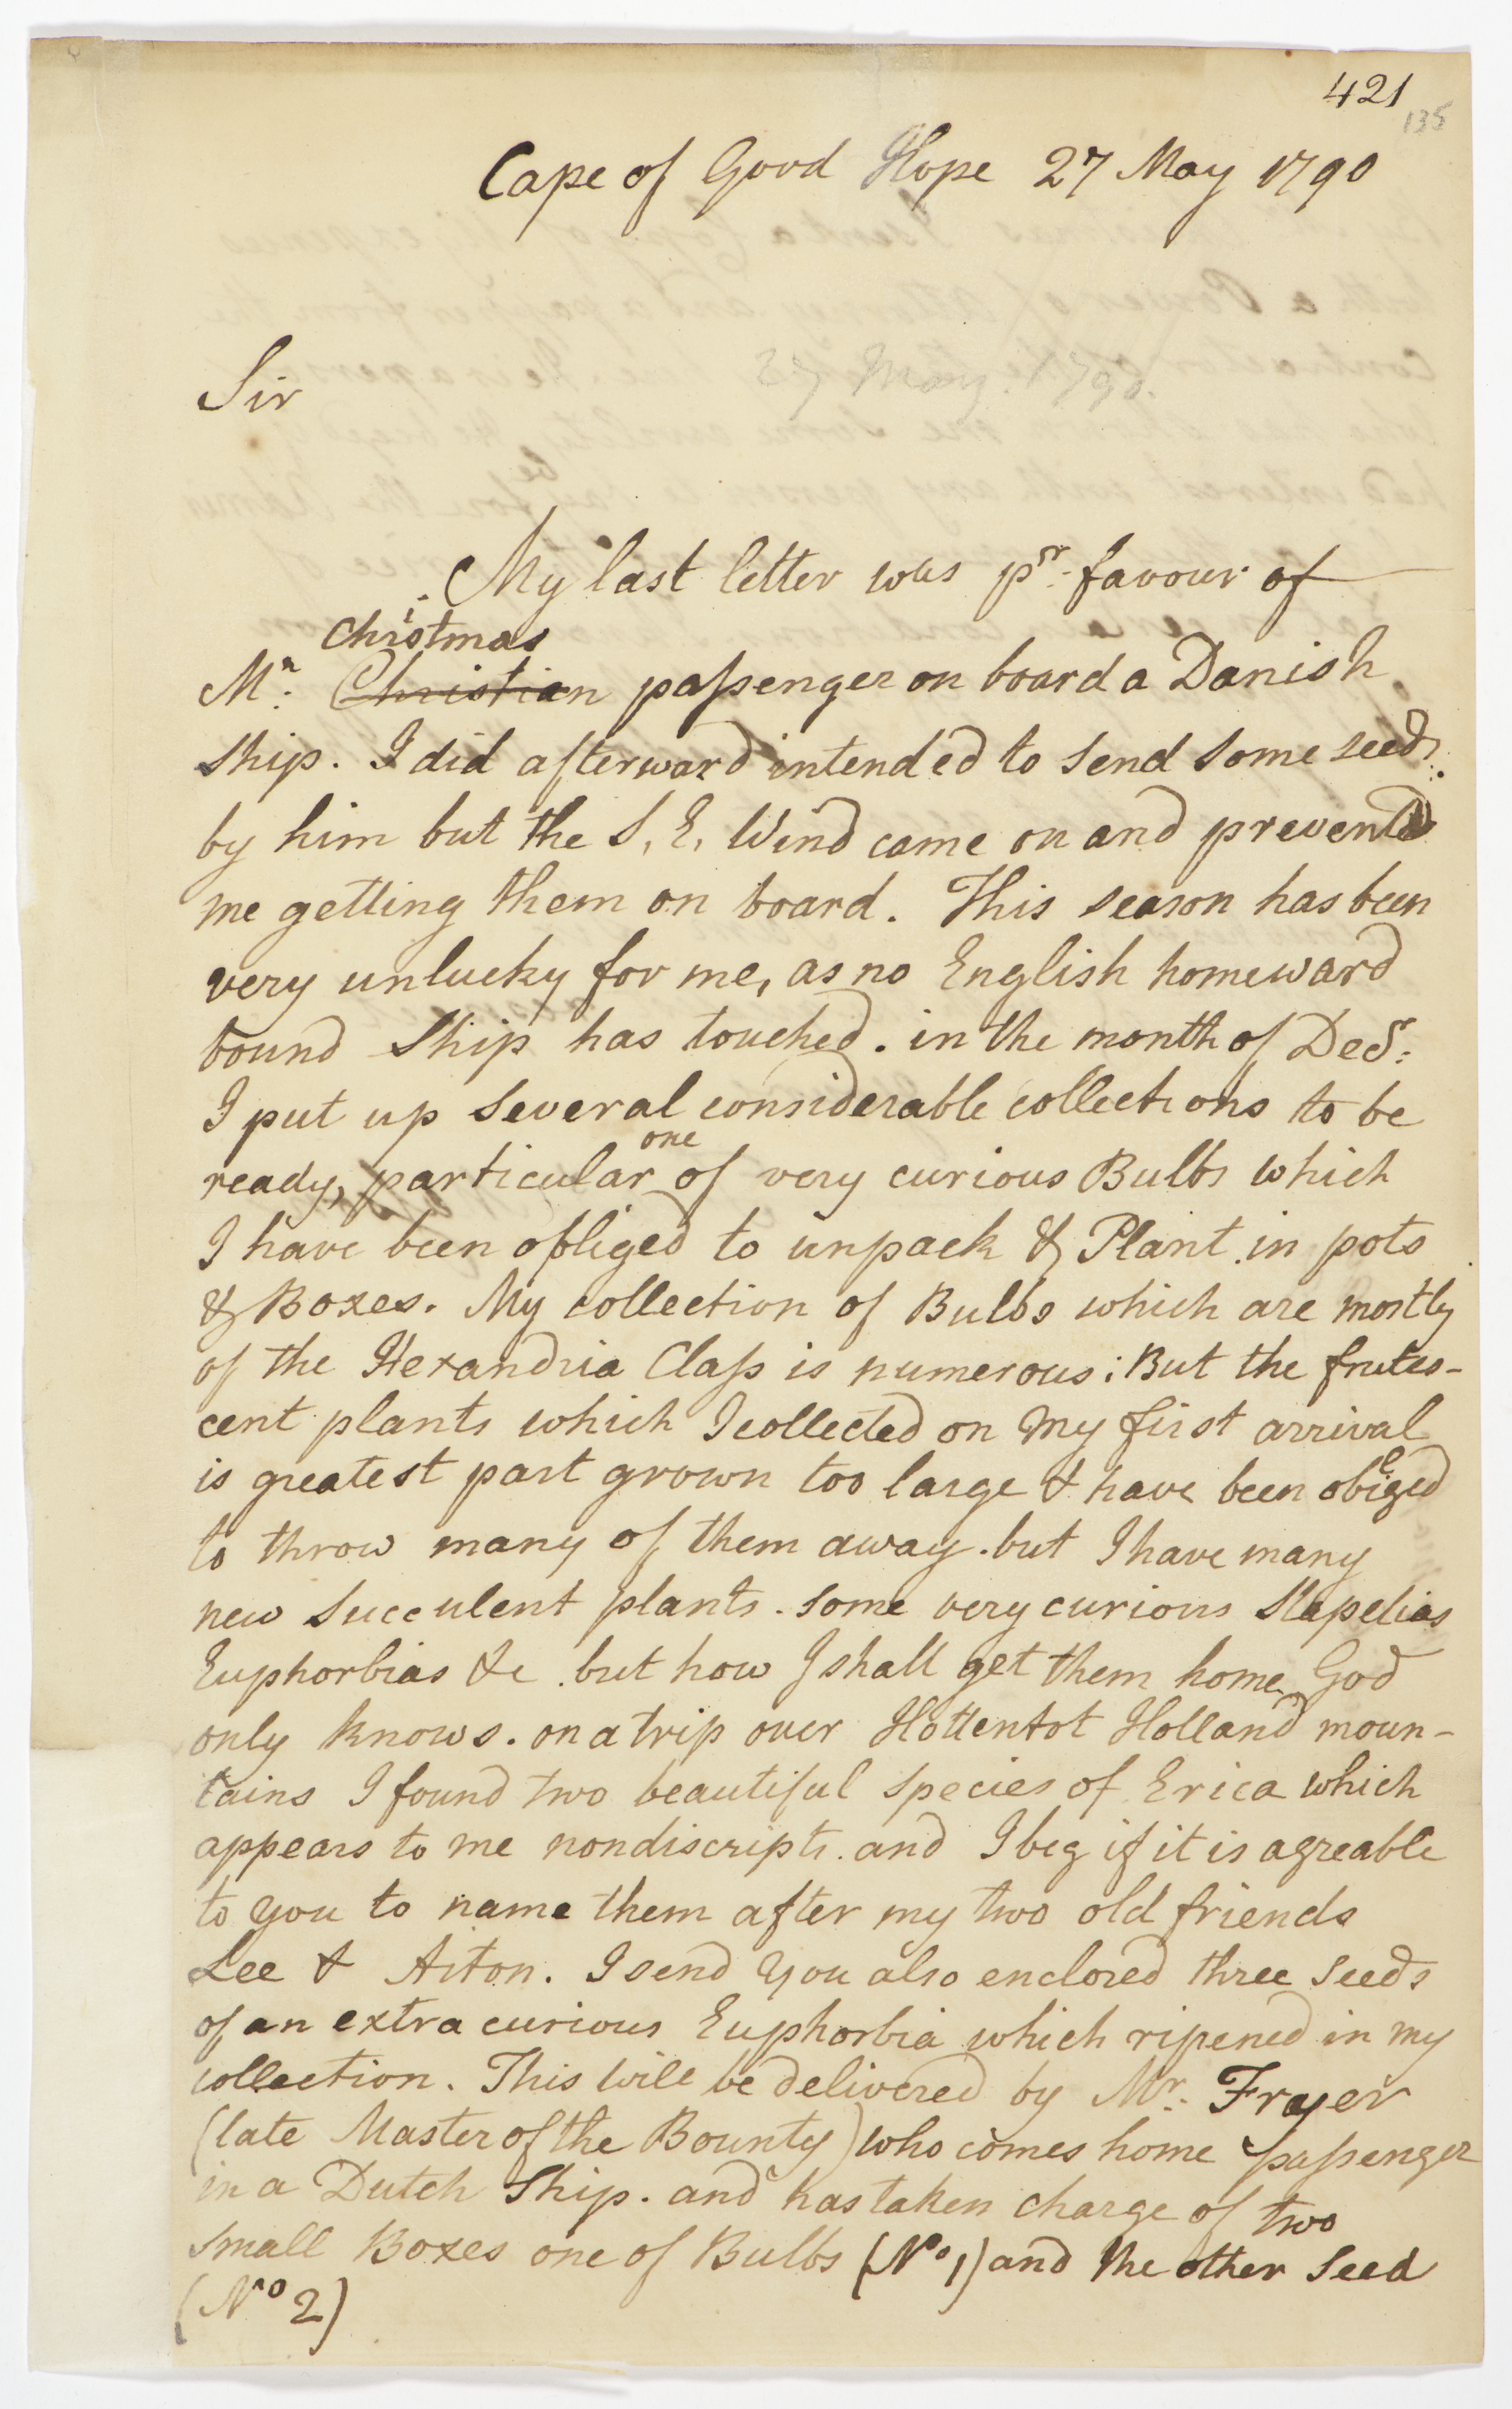 421
135
Cape of Good Hope 27 May 1790
Sir
27 May. 1790.
My last letter was pr. favour of
Christmas
Mr. Christian passenger on board a Danish
Ship. I did afterward intended to send some seeds.
by him but the S, E, Wind came on and prevented
me getting them on board. This season has been
very unlucky for me, as no English homeward
bound Ship has touched. in the month of Decr:
I put up several considerable collections to be
one
ready, particular of very curious Bulbs which
I have been obliged to unpack & Plant in pots
& Boxes. My collection of Bulbs which are mostly
of the Hexandria Class is numerous: But the frutes-
cent plants which I collected on my first arrival
is greatest part grown too large & have been obliged
to throw many of them away. but I have many
new Succulent plants. some very curious Stapelias
Euphorbias &c. but how I shall get them home God
only knows. on a trip over Hottentot Holland moun-
tains I found two beautiful species of Erica which
appears to me nondiscripts. and I beg if it is agreable
to you to name them after my two old friends
Lee & Aiton. I send you also enclosed three seeds
of an extra curious Euphorbia which ripened in my
collection. This will be delivered by Mr. Frayer
(late Master of the Bounty) who comes home passenger
in a Dutch Ship. and has taken charge of two
small Boxes one of Bulbs (No 1) and the other Seed
(No 2)